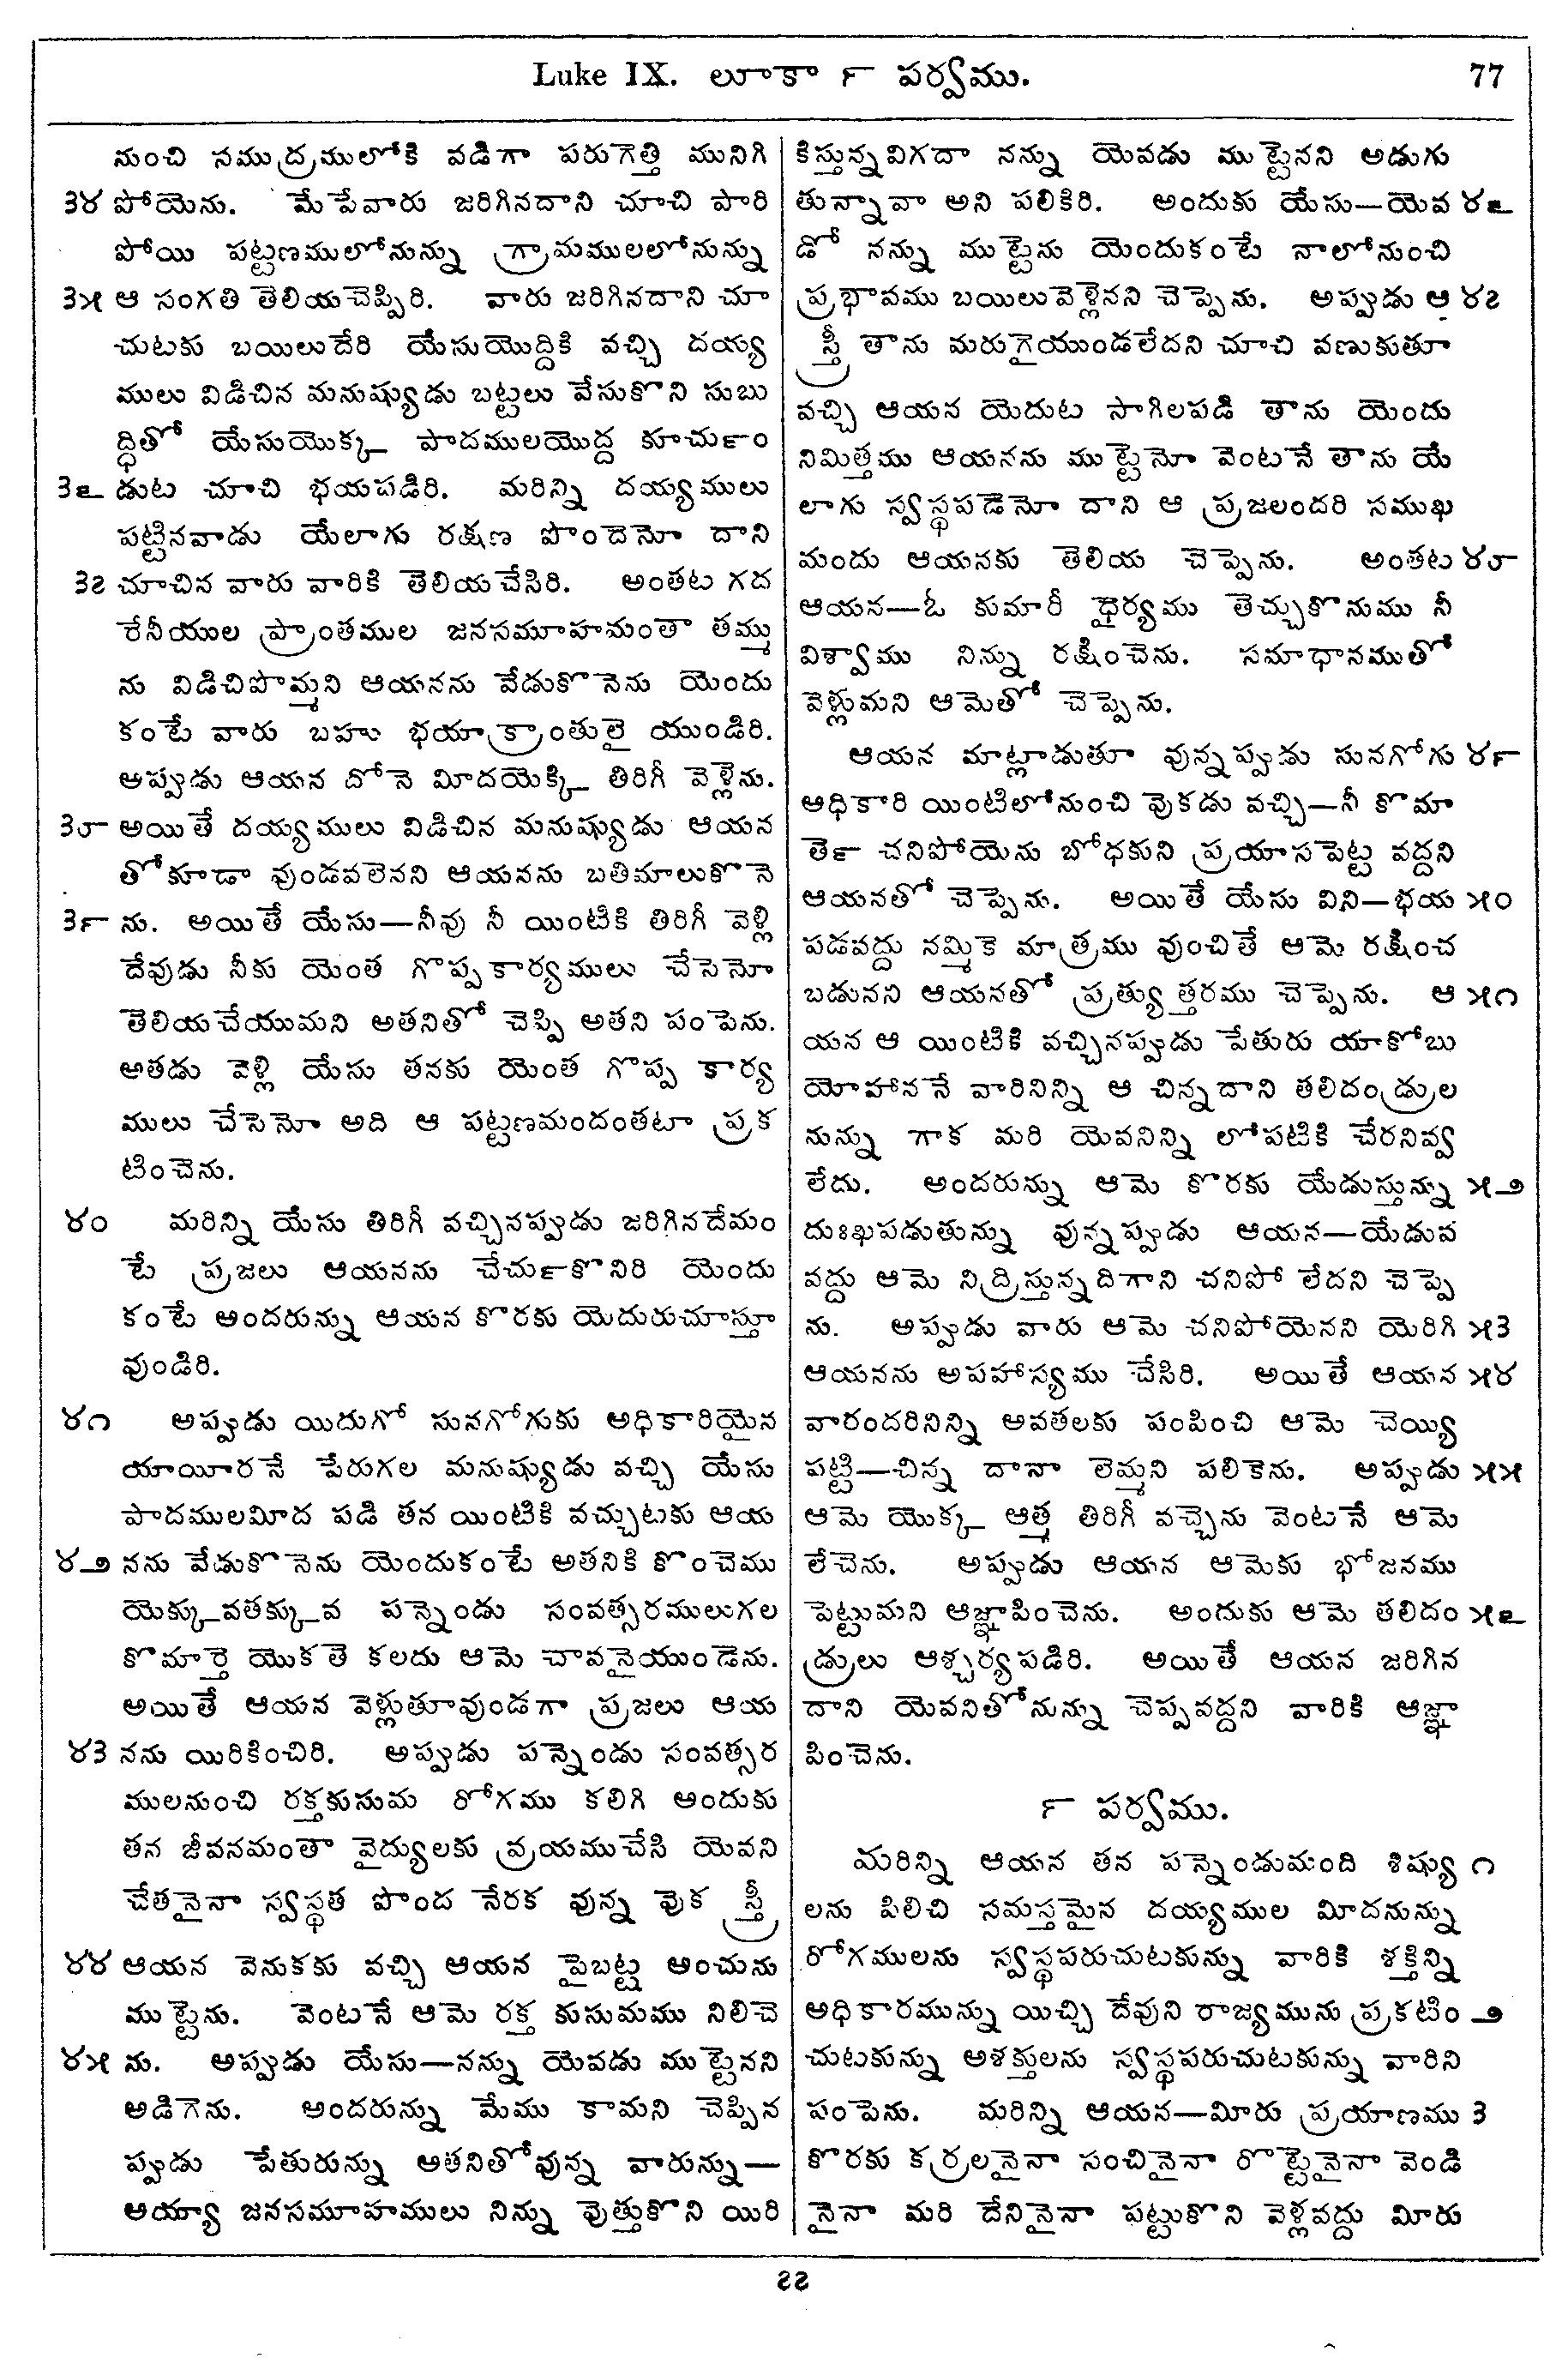 Luke IX. లూకా ౯ పర్వము. 77
నుంచి నముద్రములోకి వడిగా పరుగెత్తి మునిగి
౩౪ పోయెను. మేపేవారు జరిగినదాని చూచి పారి
పోయి పట్టణములోనున్ను గ్రామములలోనున్ను
౩౫ ఆ సంగతి తెలియచెప్పిరి. వారు జరిగినదాని చూ
చుటకు బయిలుదేరి యేసుయొద్దికి వచ్చి దయ్య
ములు విడిచిన మనుష్యుడు బట్టలు వేసుకొని సుబు
ద్ధితో యేసుయొక్క పాదములయొద్ద కూచు౯ం
౩౬ డుట చూచి భయపడిరి. మరిన్ని దయ్యములు
పట్టినవాడు యేలాగు రక్షణ పొందెనో దాని
౩౭ చూచిన వారు వారికి తెలియచేసిరి. అంతట గద
రేనీయుల ప్రాంతముల జనసమూహమంతా తమ్ము
ను విడిచిపొమ్మని ఆయనను వేడుకొనెను యెందు
కంటే వారు బహు భయాక్రాంతులై యుండిరి.
అప్పుడు ఆయన దోనె మీదయెక్కి తిరిగీ వెళ్లెను.
౩౮ అయితే దయ్యములు విడిచిన మనుష్యుడు ఆయన
తోకూడా వుండవలెనని ఆయనను బతిమాలుకొనె
౩౯ ను. అయితే యేసు—నీవు నీ యింటికి తిరిగీ వెళ్లి
దేవుడు నీకు యెంత గొప్పకార్యములు చేసెనో
తెలియచేయుమని అతనితో చెప్పి అతని పంపెను.
అతడు వెళ్లి యేసు తనకు యెంత గొప్ప కార్య
ములు చేసెనో అది ఆ పట్టణమందంతటా ప్రక
టించెను.
౪౦ మరిన్ని యేసు తిరిగీ వచ్చినప్పుడు జరిగినదేమం
టే ప్రజలు ఆయనను చేచు౯కొనిరి యెందు
కంటే అందరున్ను ఆయన కొరకు యెదురుచూస్తూ
వుండిరి.
౪౧ అప్పుడు యిదుగో సునగోగుకు అధికారియైన
యాయీరనే పేరుగల మనుష్యుడు వచ్చి యేసు
పాదములమీద పడి తన యింటికి వచ్చుటకు ఆయ
౪౨ నను వేడుకొనెను యెందుకంటే అతనికి కొంచెము
యెక్కువతక్కువ పన్నెండు సంవత్సరములుగల
కొమార్తె యొకతె కలదు ఆమె చావనైయుండెను.
అయితే ఆయన వెళ్లుతూవుండగా ప్రజలు ఆయ
౪౩ నను యిరికించిరి. అప్పుడు పన్నెండు సంవత్సర
ములనుంచి రక్తకుసుమ రోగము కలిగి అందుకు
తన జీవనమంతా వైద్యులకు వ్రయముచేసి యెవని
చేతనైనా స్వస్థత పొంద నేరక వున్న వుక స్త్రీ
౪౪ ఆయన వెనుకకు వచ్చి ఆయన పైబట్ట అంచును
ముట్టెను. వెంటనే ఆమె రక్త కుసుమము నిలిచె
౪౫ ను. అప్పుడు యేసు—నన్ను యెవడు ముట్టెనని
అడిగెను. అందరున్ను మేము కామని చెప్పిన
ప్పుడు పేతురున్ను అతనితోవున్న వారున్ను—
అయ్యా జనసమూహములు నిన్ను వుత్తుకొని యిరి
కిస్తున్నవిగదా నన్ను యెవడు ముట్టెనని అడుగు
తున్నావా అని పలికిరి. అందుకు యేసు—యెవ ౪౬
డో నన్ను ముట్టెను యెందుకంటే నాలోనుంచి
ప్రభావము బయిలువెళ్లెనని చెప్పెను. అప్పుడు ఆ ౪౭
స్త్రీ తాను మరుగైయుండలేదని చూచి వణుకుతూ
వచ్చి ఆయన యెదుట సాగిలపడి తాను యెందు
నిమిత్తము ఆయనను ముట్టెనో వెంటనే తాను యే
లాగు స్వస్థపడెనో దాని ఆ ప్రజలందరి సముఖ
మందు ఆయనకు తెలియ చెప్పెను. అంతట ౪౮
ఆయన—ఓ కుమారీ ధైర్యము తెచ్చుకొనుము నీ
విశ్వాము నిన్ను రక్షించెను. సమాధానముతో
వెళ్లుమని ఆమెతో చెప్పెను.
ఆయన మాట్లాడుతూ వున్నప్పుడు సునగోగు ౪౯
ఆధికారి యింటిలోనుంచి వుకడు వచ్చి—నీ కొమా
తె౯ చనిపోయెను బోధకుని ప్రయాసపెట్ట వద్దని
ఆయనతో చెప్పెను. అయితే యేసు విని—భయ ౫౦
పడవద్దు నమ్మికె మాత్రము వుంచితే ఆమె రక్షించ
బడునని ఆయనతో ప్రత్యుత్తరము చెప్పెను. ఆ ౫౧
యన ఆ యింటికి వచ్చినప్పుడు పేతురు యాకోబు
యోహాననే వారినిన్ని ఆ చిన్నదాని తలిదండ్రుల
నున్ను గాక మరి యెవనిన్ని లోపటికి చేరనివ్వ
లేదు. అందరున్ను ఆమె కొరకు యేడుస్తున్ను ౫౨
దుఃఖపడుతున్ను వున్నప్పుడు ఆయన—యేడువ
వద్దు ఆమె నిద్రిస్తున్నదిగాని చనిపో లేదని చెప్పె
ను. అప్పుడు వారు ఆమె చనిపోయెనని యెరిగి ౫౩
ఆయనను అపహాస్యము చేసిరి. అయితే ఆయన ౫౪
వారందరినిన్ని అవతలకు పంపించి ఆమె చెయ్యి
పట్టి—చిన్న దానా లెమ్మని పలికెను. అప్పుడు ౫౫
ఆమె యొక్క ఆత్మ తిరిగీ వచ్చెను వెంటనే ఆమె
లేచెను. అప్పుడు ఆయన ఆమెకు భోజనము
పెట్టుమని ఆజ్ఞాపించెను. అందుకు ఆమె తలిదం ౫౬
డ్రులు ఆశ్చర్యపడిరి. అయితే ఆయన జరిగిన
దాని యెవనితోనున్ను చెప్పవద్దని వారికి ఆజ్ఞా
పించెను.
౯ పర్వము.
మరిన్ని ఆయన తన పన్నెండుమంది శిష్యు ౧
లను పిలిచి సమస్తమైన దయ్యముల మీదనున్ను
రోగములను స్వస్థపరుచుటకున్ను వారికి శక్తిన్ని
అధికారమున్ను యిచ్చి దేవుని రాజ్యమును ప్రకటిం ౨
చుటకున్ను అశక్తులను స్వస్థపరుచుటకున్ను వారిని
పంపెను. మరిన్ని ఆయన—మీరు ప్రయాణము ౩
కొరకు కర్రలనైనా సంచినైనా రొట్టెనైనా వెండి
నైనా మరి దేనినైనా పట్టుకొని వెళ్లవద్దు మీరు
౭౭